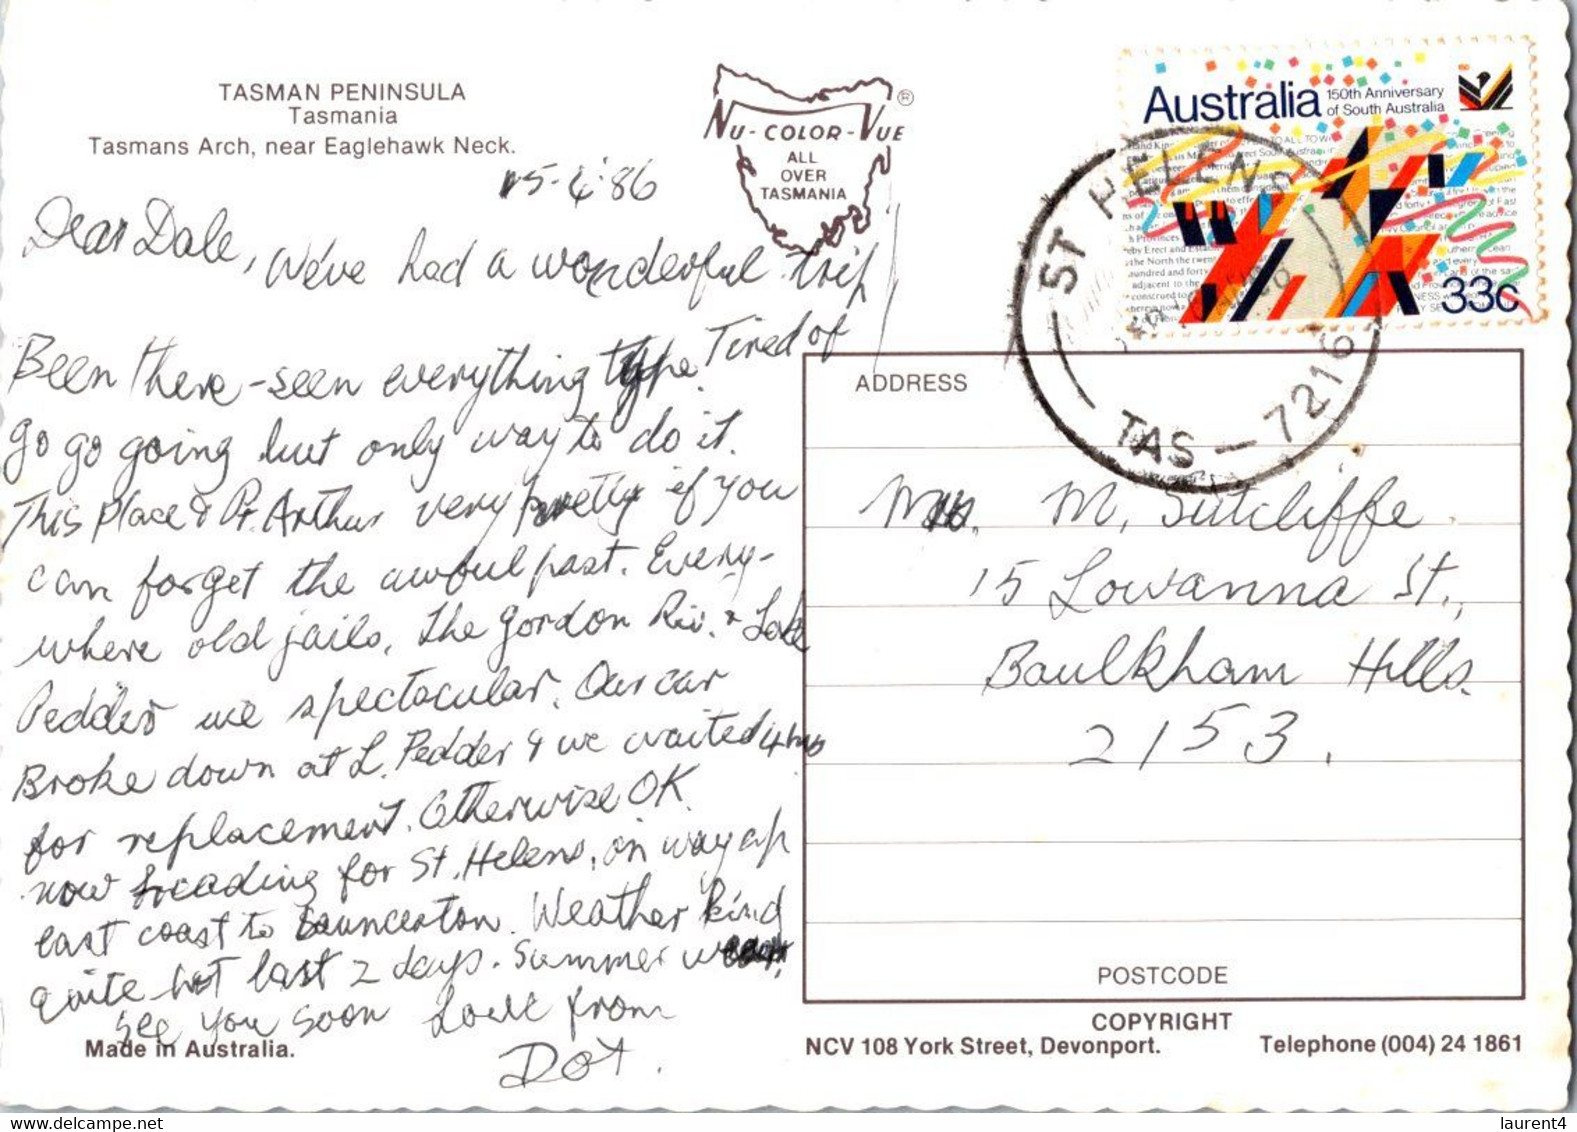 TASMAN PENINSULA
Tasmania
Tasmans Arch, near Eaglehawk Neck.
NU-COLOR-VUE ®
ALL
OVER
TASMANIA
Australia 150th Anniversary
of South Australia
33c
ST HELENS
TAS - 7216
5-4-86
Dear Dale, We've had a wonderful trip
Been there - seen everything type. Tired of
go go going but only way to do it.
This place & Pt. Arthur very pretty if you
can forget the awful past. Every-
where old jails, The Gordon Riv. & Lake
Pedder we spectacular. Our car
Broke down at L. Pedder & we waited 4 hrs
for replacement. Otherwise OK.
now heading for St. Helens, on way up
east coast to Launceston. Weather kind
quite hot last 2 days. Summer
See you soon Love from
Dot.
Made in Australia.
ADDRESS
Mrs. M. Sutcliffe.
15 Lowanna St.,
Baulkham Hills.
2153.
POSTCODE
COPYRIGHT
NCV 108 York Street, Devonport. Telephone (004) 24 1861
laurent4